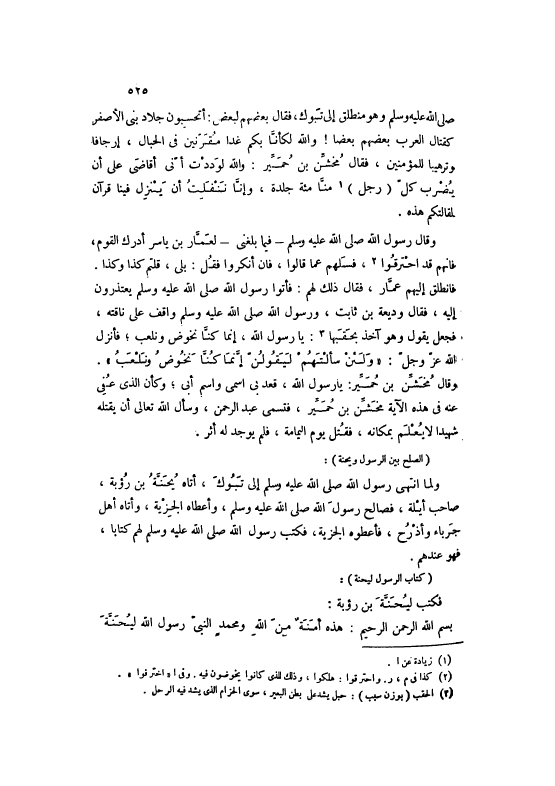 ٥٢٥
صلى الله عليه وسلم وهو منطلق إلى تبوك، فقال بعضهم لبعض: أتحسبون جلاد بنى الأصفر
كقتال العرب بعضهم بعضا ! والله لكأنَّا بكم غدا مُقرَّنين فى الحبال ، إرجافا
وترهيبا للمؤمنين ، فقال مُخَشِّن بن حُمَيِّر : والله لودِدْت أنّى أقاضَى على أن
يُضْرب كلّ ( رجل ) ١ منَّا مئة جلدة ، وإنَّا نَنْفلِتُ أن يَنزل فينا قرآن
لمقالتكم هذه .
وقال رسول الله صلى الله عليه وسلم – فيما بلغنى – لعمَّار بن ياسر أدرك القوم،
فانهم قد احْترقُوا ٢ ، فسَلهم عما قالوا ، فان أنكروا فقُل : بلى ، قلتم كذا وكذا .
فانطلق إليهم عمَّار ، فقال ذلك لهم : فأتوا رسول الله صلى الله عليه وسلم يعتذرون
إليه ، فقال وديعة بن ثابت ، ورسول الله صلى الله عليه وسلم واقف على ناقته ،
فجعل يقول وهو آخذ بحَقَبها ٣ : يا رسول الله ، إنما كنَّا نخوض ونلعب ؛ فأنزل
الله عزّ وجلّ : « وَلَئنْ سألْتَهُمْ لَيَقُولُنّ إنَّمَا كُنَّا نَخُوضُ وَنَلْعَبُ » .
وقال مُخَشِّن بن حُمَيِّر: يارسول الله ، قعد بى اسمى واسم أبى ؛ وكأن الذى عُنِى
عنه فى هذه الآية مخَشِّن بن حُمَيِّر ، فتسمى عبد الرحمن ، وسأل الله تعالى أن يقتله
شهيدا لايُعْلَم بمكانه ، فقُتل يوم اليمامة ، فلم يوجد له أثر .
( الصلح بين الرسول ويحنة ) :
ولما انتهى رسول الله صلى الله عليه وسلم إلى تَبُوكَ ، أتاه يُحَنَّةُ بن رُؤبة ،
صاحب أيْلة ، فصالح رسولَ الله صلى الله عليه وسلم ، وأعطاه الجِزْية ، وأتاه أهل
جَرباء وأذْرُح ، فأعطوه الجزية، فكتب رسول الله صلى الله عليه وسلم لهم كتابا ،
فهو عندهم .
( كتاب الرسول ليحنة ) :
فكتب ليُحَنَّةَ بن رؤبة :
بسم الله الرحمن الرحيم : هذه أمَنَةٌ مِنَ اللهِ ومحمدٍ النبىّ رسول الله ليُحَنَّةَ
(١) زيادة عن ا .
(٢) كذا فى م ، ر. واحترقوا : هلكوا ، وذلك للذى كانوا يخوضون فيه . وفى ا « اخترفوا » .
(٣) الحقب ( بوزن سبب ) : حبل يشد على بطن البعير ، سوى الحزام الذى يشد فيه الرحل .